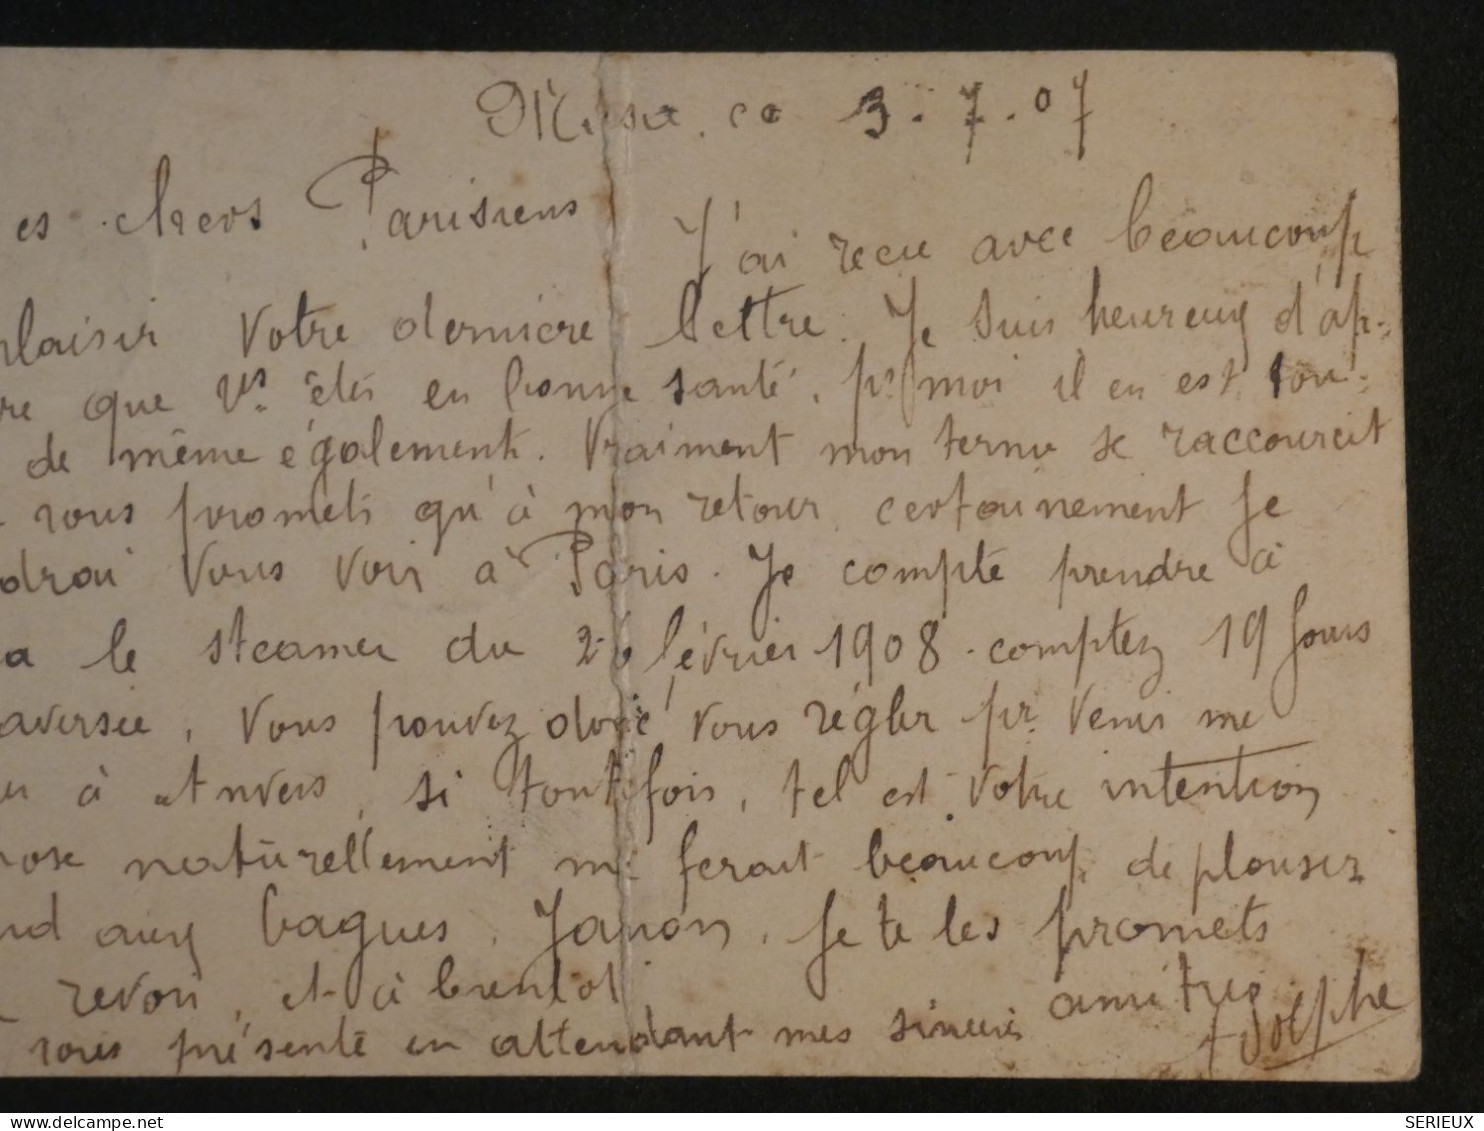 ce 3.7.07
es chers Parisiens
J'ai recu avec beaucoup
plaisir votre dernière lettre. Je suis heureux d'ap-
re que vs. êtes en bonne santé, pr moi il en est tou-
de même également. Vraiment mon terme se raccourcit
vous promets qu'à mon retour, certainement je
drai vous voir à Paris. Je compte prendre à
a le steamer du 26 février 1908. comptez 19 jours
aversée, vous pouvez donc vous régler pr. venir me
à Anvers, si toutefois, tel est votre intention
hose naturellement me ferait beaucoup de plaisir
nd aux bagues, Janon, je te les promets
revoir, et à bientot
vous présente en attendant mes sincères amitiés
Adolphe
SERIEUX